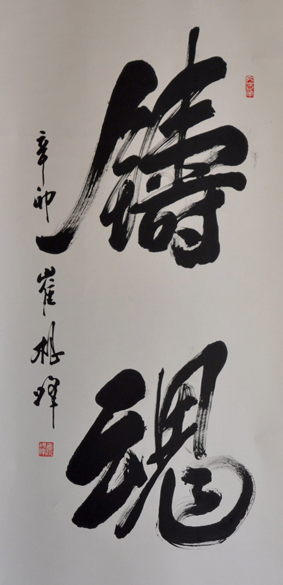 鑄魂
辛卯 崔根峰